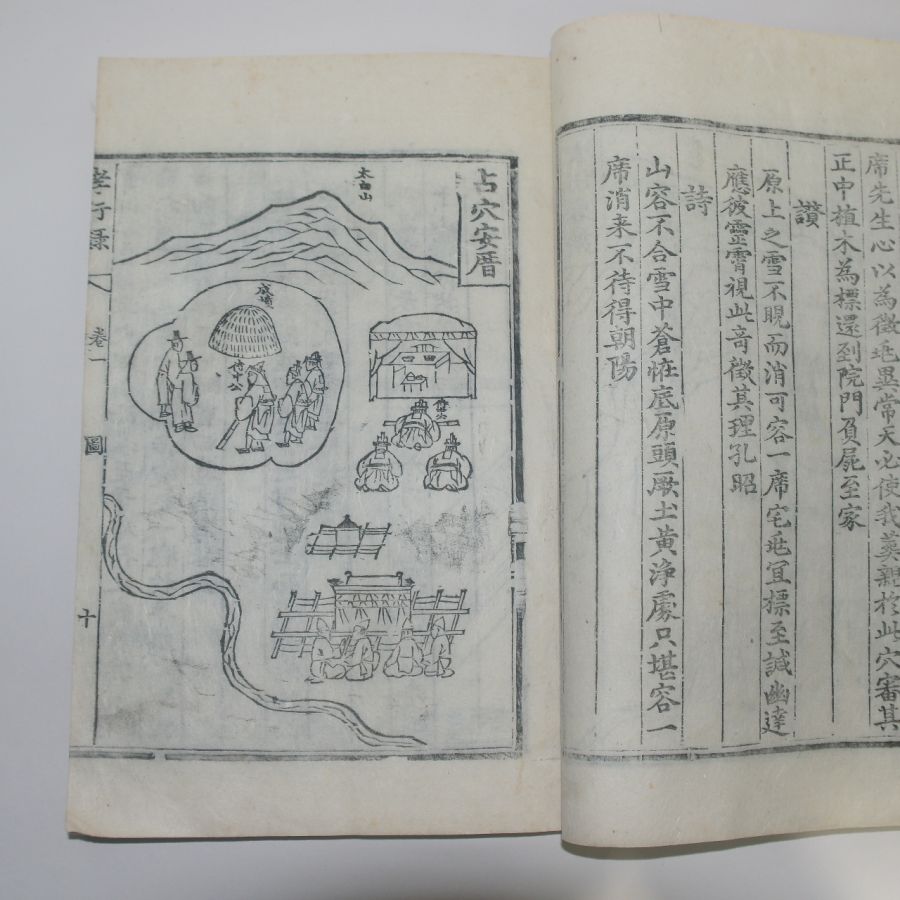 席先生心以為徵兆異常天必使我葬親於此穴審其
正中植木為標還到院門負屍至家
讃
原上之雪不晛而消可容一席宅兆宜標至誠幽達
應彼霊霄視此竒徵其理孔昭
詩
山容不合雪中蒼恠底原頭厥土黄浄處只堪容一
席消来不待得朝陽
占穴安厝
太白山
孝行錄
卷一
圖
十